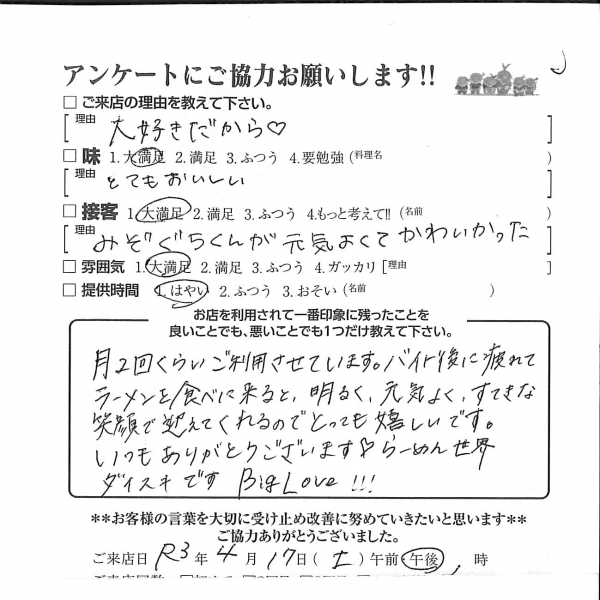 アンケートにご協力お願いします!!
□ ご来店の理由を教えて下さい。
[理由 大好きだから♡ ]
□ 味 1.大満足 2.満足 3.ふつう 4.要勉強 (料理名 )
[理由 とてもおいしい ]
□ 接客 1.大満足 2.満足 3.ふつう 4.もっと考えて!! (名前 )
[理由 みぞぐちくんが元気よくてかわいかった ]
□ 雰囲気 1.大満足 2.満足 3.ふつう 4.ガッカリ [理由 ]
□ 提供時間 1.はやい 2.ふつう 3.おそい (名前 )
お店を利用されて一番印象に残ったことを
良いことでも、悪いことでも1つだけ教えて下さい。
月2回くらいご利用させています。バイト後に疲れて
ラーメンを食べに来ると、明るく、元気よく、すてきな
笑顔で迎えてくれるのでとっても嬉しいです。
いつもありがとうございます♡らーめん世界
ダイスキです Big Love !!!
**お客様の言葉を大切に受け止め改善に努めていきたいと思います**
ご協力ありがとうございました。
ご来店日 R3年 4月 17日(土)午前・午後 時